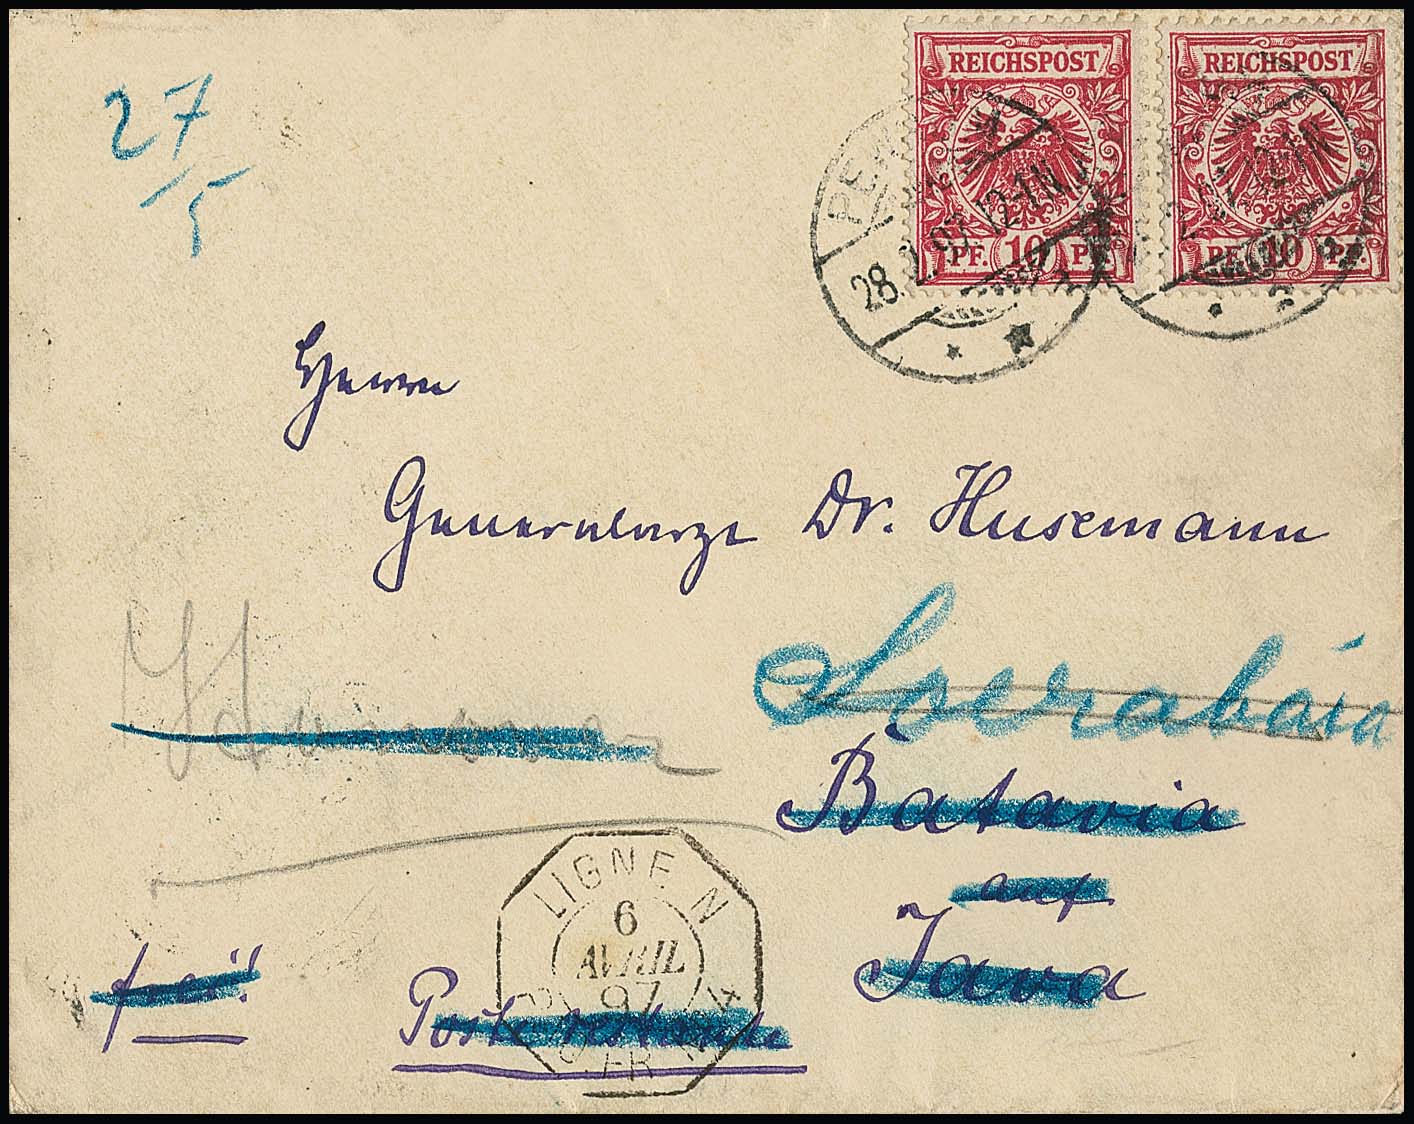 27
5
REICHSPOST REICHSPOST
PF. 10 PF. PF. 10 PF.
28. 97. 12-1N.
Herrn
Generalarzt Dr. Husemann
Soerabáia
Batavia
auf
Java
frei!
Poste restante
LIGNE N
6
AVRIL
97
FR